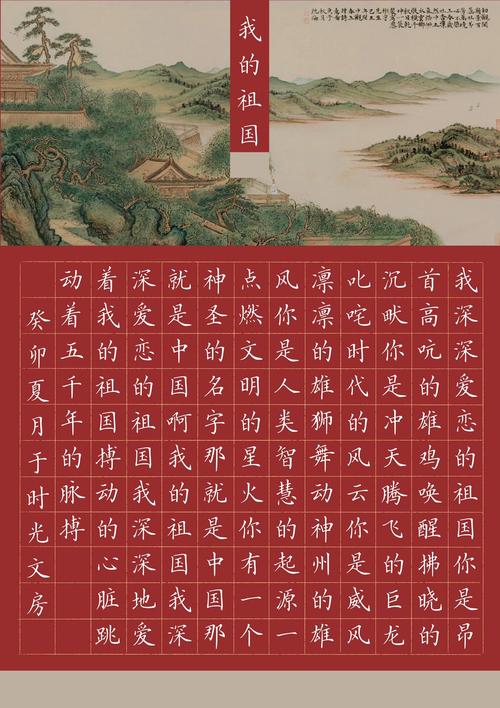 我的祖国
我深深爱恋的祖国你是昂
首高吭的雄鸡唤醒拂晓的
沉畎你是冲天腾飞的巨龙
叱咤时代的风云你是威风
凛凛的雄狮舞动神州的雄
风你是人类智慧的起源一
点燃文明的星火你有一个
神圣的名字那就是中国那
就是中国啊我的祖国我深
深爱恋的祖国我深深地爱
着我的祖国搏动的心脏跳
动着五千年的脉搏
癸卯夏月于时光文房